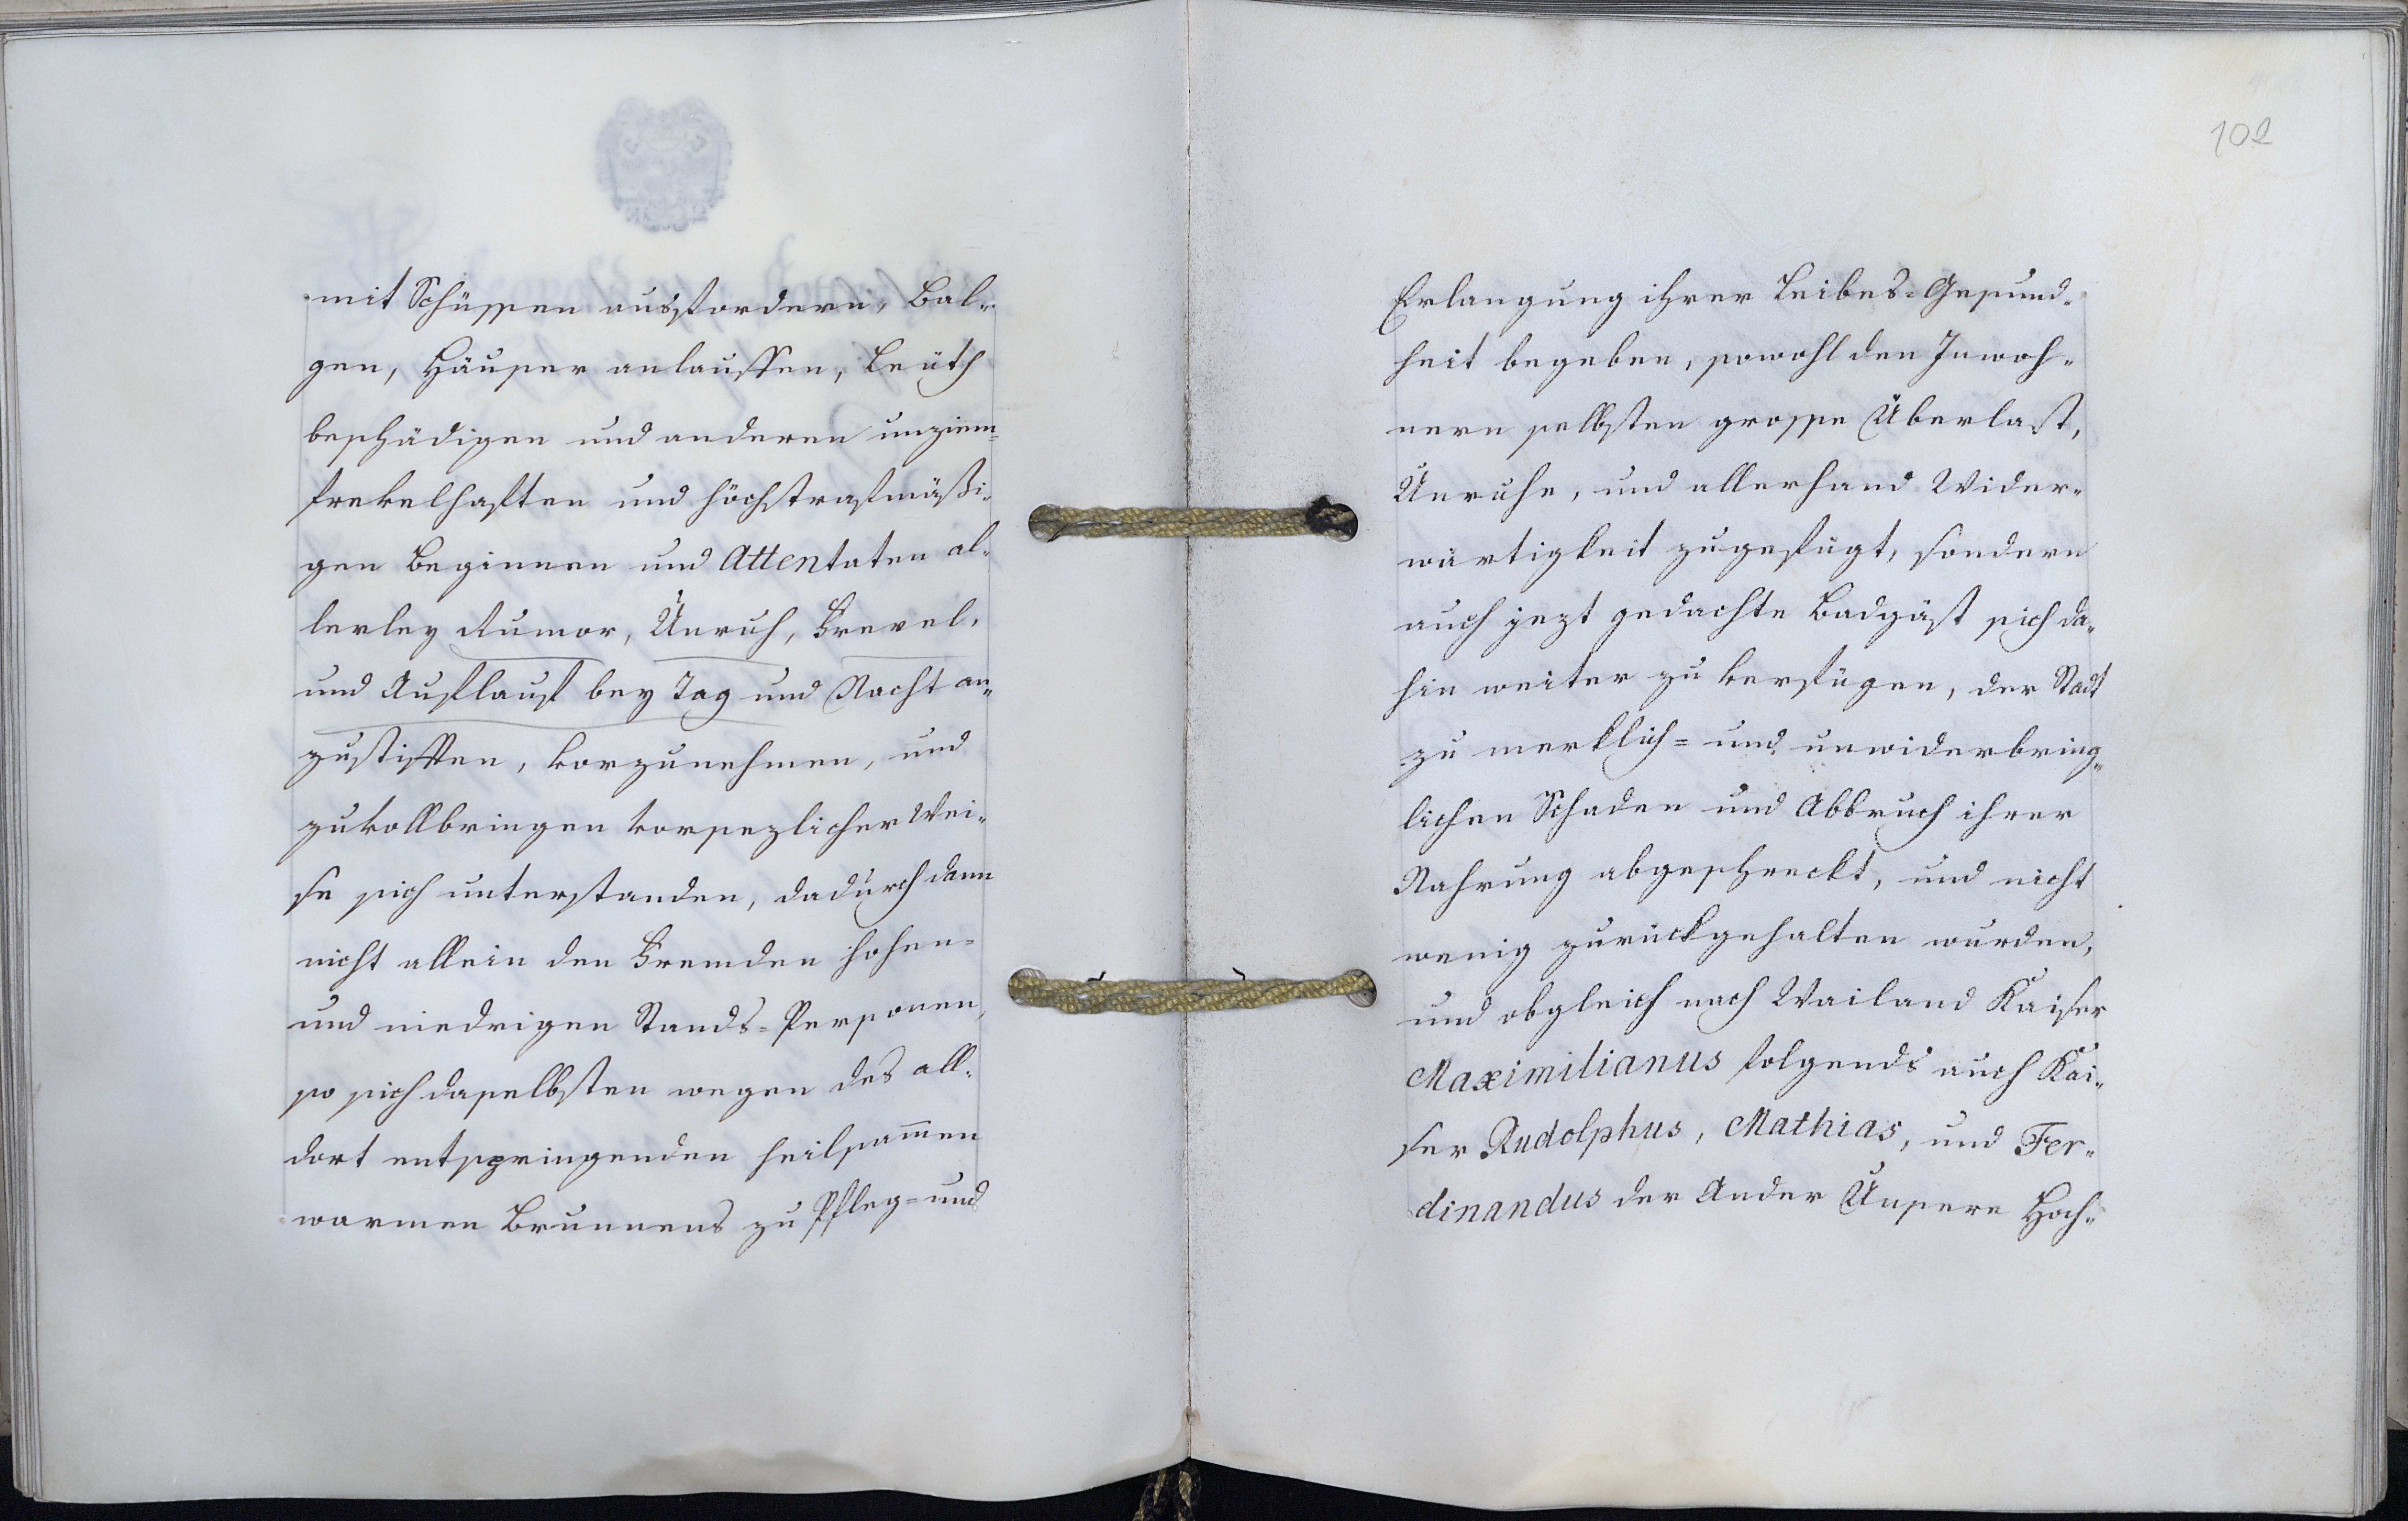 mit Schüssen ausfordern, Bal-
gen, Häuser anlauffen, Leüth
beschädigen und anderen unziem-
frevelhaften und höchstrafmäßi-
gen Beginnen und Attentaten al-
lerley Rumor, Unruh, Frevel,
und Auflauf bey Tag und Nacht an-
zustifften, vorzunehmen, und
zuvollbringen vorsezlicher Wei-
se sich unterstanden, dadurch dann
nicht allein den Fremden hohen-
und niedrigen Stands-Personen,
so sich daselbsten wegen des all-
dort entspringenden heilsam̄en
warmen Brunnens zu Pfleg- und
102
Erlangung ihrer Leibes-Gesund-
heit begeben, sowohl den Inwoh-
nern selbsten grosse Überlast,
Unruhe, und allerhand Wider-
wärtigkeit zugefügt, sondern
auch jezt gedachte Badgäst sich da-
hin weiter zu verfügen, der Stadt
zu merklich- und unwiderbring-
lichen Schaden und Abbruch ihrer
Nahrung abgeschreckt, und nicht
wenig zurückgehalten wurden,
und obgleich nach Wailand Kaiser
Maximilianus folgends auch Kai-
ser Rudolphus, Mathias, und Fer-
dinandus der Ander Unsere Hoch-